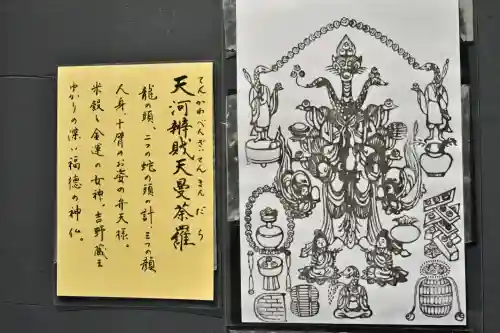 てんかわべんざいてんまんだら
天河辨財天曼荼羅
龍の頭、二つの蛇の頭の計、三つの顔
人身、十臂のお姿の弁天様。
米穀と金運の女神。吉野蔵王
ゆかりの深い福徳の神仏。